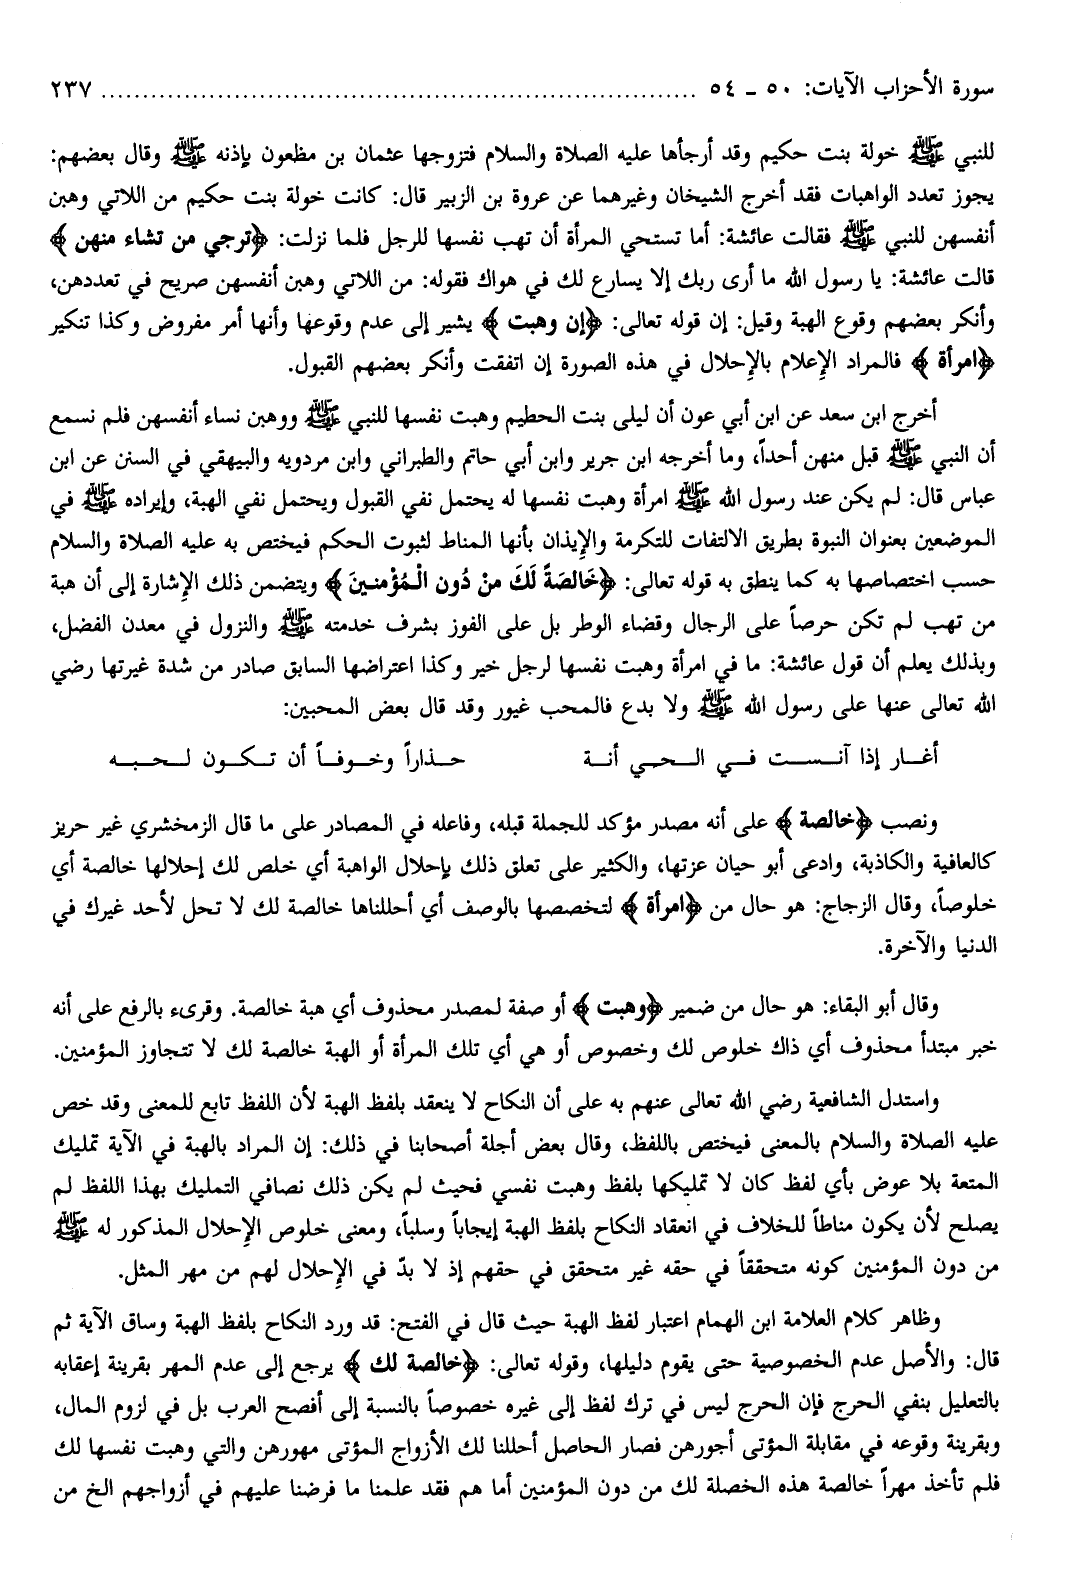 سورة الأحزاب الآيات: ٥٠ ـ ٥٤ ........................................................................ ٢٣٧
للنبي ﷺ خولة بنت حكيم وقد أرجأها عليه الصلاة والسلام فتزوجها عثمان بن مظعون بإذنه ﷺ وقال بعضهم:
يجوز تعدد الواهبات فقد أخرج الشيخان وغيرهما عن عروة بن الزبير قال: كانت خولة بنت حكيم من اللاتي وهبن
أنفسهن للنبي ﷺ فقالت عائشة: أما تستحي المرأة أن تهب نفسها للرجل فلما نزلت: ﴿ترجي من تشاء منهن﴾
قالت عائشة: يا رسول الله ما أرى ربك إلا يسارع لك في هواك فقوله: من اللاتي وهبن أنفسهن صريح في تعددهن،
وأنكر بعضهم وقوع الهبة وقيل: إن قوله تعالى: ﴿إن وهبت﴾ يشير إلى عدم وقوعها وأنها أمر مفروض وكذا تنكير
﴿امرأة﴾ فالمراد الإعلام بالإحلال في هذه الصورة إن اتفقت وأنكر بعضهم القبول.
أخرج ابن سعد عن ابن أبي عون أن ليلى بنت الحطيم وهبت نفسها للنبي ﷺ ووهبن نساء أنفسهن فلم نسمع
أن النبي ﷺ قبل منهن أحداً، وما أخرجه ابن جرير وابن أبي حاتم والطبراني وابن مردويه والبيهقي في السنن عن ابن
عباس قال: لم يكن عند رسول الله ﷺ امرأة وهبت نفسها له يحتمل نفي القبول ويحتمل نفي الهبة، وإيراده ﷺ في
الموضعين بعنوان النبوة بطريق الالتفات للتكرمة والإيذان بأنها المناط لثبوت الحكم فيختص به عليه الصلاة والسلام
حسب اختصاصها به كما ينطق به قوله تعالى: ﴿خَالِصَةً لَكَ مِنْ دُونِ الْمُؤْمِنينَ﴾ ويتضمن ذلك الإشارة إلى أن هبة
من تهب لم تكن حرصاً على الرجال وقضاء الوطر بل على الفوز بشرف خدمته ﷺ والنزول في معدن الفضل،
وبذلك يعلم أن قول عائشة: ما في امرأة وهبت نفسها لرجل خير وكذا اعتراضها السابق صادر من شدة غيرتها رضي
الله تعالى عنها على رسول الله ﷺ ولا بدع فالمحب غيور وقد قال بعض المحبين:
أغـار إذا آنـسـت فـي الـحـي أنـة حـذاراً وخـوفـاً أن تـكـون لـحـبـه
ونصب ﴿خالصة﴾ على أنه مصدر مؤكد للجملة قبله، وفاعله في المصادر على ما قال الزمخشري غير حريز
كالعافية والكاذبة، وادعى أبو حيان عزتها، والكثير على تعلق ذلك بإحلال الواهبة أي خلص لك إحلالها خالصة أي
خلوصاً، وقال الزجاج: هو حال من ﴿امرأة﴾ لتخصصها بالوصف أي أحللناها خالصة لك لا تحل لأحد غيرك في
الدنيا والآخرة.
وقال أبو البقاء: هو حال من ضمير ﴿وهبت﴾ أو صفة لمصدر محذوف أي هبة خالصة. وقرىء بالرفع على أنه
خبر مبتدأ محذوف أي ذاك خلوص لك وخصوص أو هي أي تلك المرأة أو الهبة خالصة لك لا تتجاوز المؤمنين.
واستدل الشافعية رضي الله تعالى عنهم به على أن النكاح لا ينعقد بلفظ الهبة لأن اللفظ تابع للمعنى وقد خص
عليه الصلاة والسلام بالمعنى فيختص باللفظ، وقال بعض أجلة أصحابنا في ذلك: إن المراد بالهبة في الآية تمليك
المتعة بلا عوض بأي لفظ كان لا تمليكها بلفظ وهبت نفسي فحيث لم يكن ذلك نصافي التمليك بهذا اللفظ لم
يصلح لأن يكون مناطاً للخلاف في انعقاد النكاح بلفظ الهبة إيجاباً وسلباً، ومعنى خلوص الإحلال المذكور له ﷺ
من دون المؤمنين كونه متحققاً في حقه غير متحقق في حقهم إذ لا بدّ في الإحلال لهم من مهر المثل.
وظاهر كلام العلامة ابن الهمام اعتبار لفظ الهبة حيث قال في الفتح: قد ورد النكاح بلفظ الهبة وساق الآية ثم
قال: والأصل عدم الخصوصية حتى يقوم دليلها، وقوله تعالى: ﴿خالصة لك﴾ يرجع إلى عدم المهر بقرينة إعقابه
بالتعليل بنفي الحرج فإن الحرج ليس في ترك لفظ إلى غيره خصوصاً بالنسبة إلى أفصح العرب بل في لزوم المال،
وبقرينة وقوعه في مقابلة المؤتى أجورهن فصار الحاصل أحللنا لك الأزواج المؤتى مهورهن والتي وهبت نفسها لك
فلم تأخذ مهراً خالصة هذه الخصلة لك من دون المؤمنين أما هم فقد علمنا ما فرضنا عليهم في أزواجهم الخ من